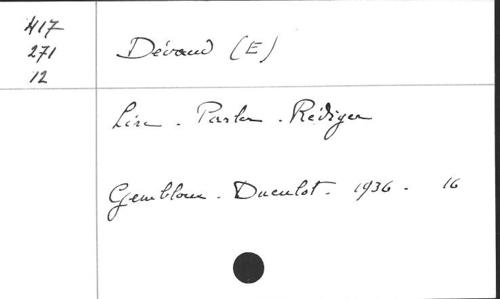 417
271
12
Dévaud (E)
Lire - Parler - Rédiger
Gembloux - Duculot - 1936 - 16